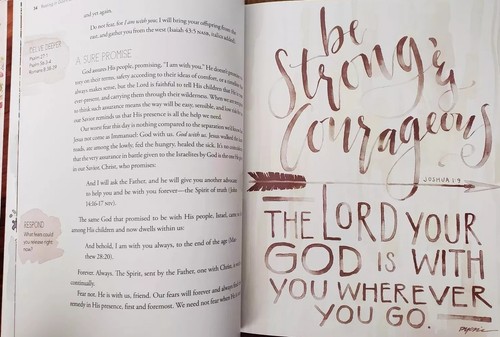 34
and yet again,
Do not fear, for I am with you; I will bring your offspring from the
east, and gather you from the west (Isaiah 43:5 NASB, italics added).
DELVE DEEPER
Psalm 27:1
Psalm 56:3-4
A SURE PROMISE
God assures His people, promising, "I am with you." He doesn't
on their terms, safety according to their ideas of comfort, or
always make sense, but the Lord is faithful to tell His children that He is
ever-present, and carrying them through their wilderness. When we are
to think such assurance means the way will be easy, sensible, and
our Savior reminds us that His presence is all the help we need.
Our worst fear this day is nothing compared to the separation we'd
Jesus not come as Immanuel: God with us. God with us. Jesus walked the
roads, ate among the lowly, fed the hungry, healed the sick. It's no
that the very assurance in battle given to the Israelites by God is the one
in our Savior, Christ, who promises:
And I will ask the Father, and he will give you another advocate
to help you and be with you forever—the Spirit of truth (John
14:16-17 NIV).
RESPOND
What fears could
you release right
now?
The same God that promised to be with His people, Israel, came
among His children and now dwells within us:
And behold, I am with you always, to the end of the age (Mat-
thew 28:20).
Forever. Always. The Spirit, sent by the Father, one with Christ, is
continually.
Fear not. He is with us, friend. Our fears will forever and always
remedy in His presence, first and foremost. We need not fear when
be
Strong &
Courageous
JOSHUA 1:9
THE LORD YOUR
GOD IS WITH
YOU WHEREVER
YOU GO.